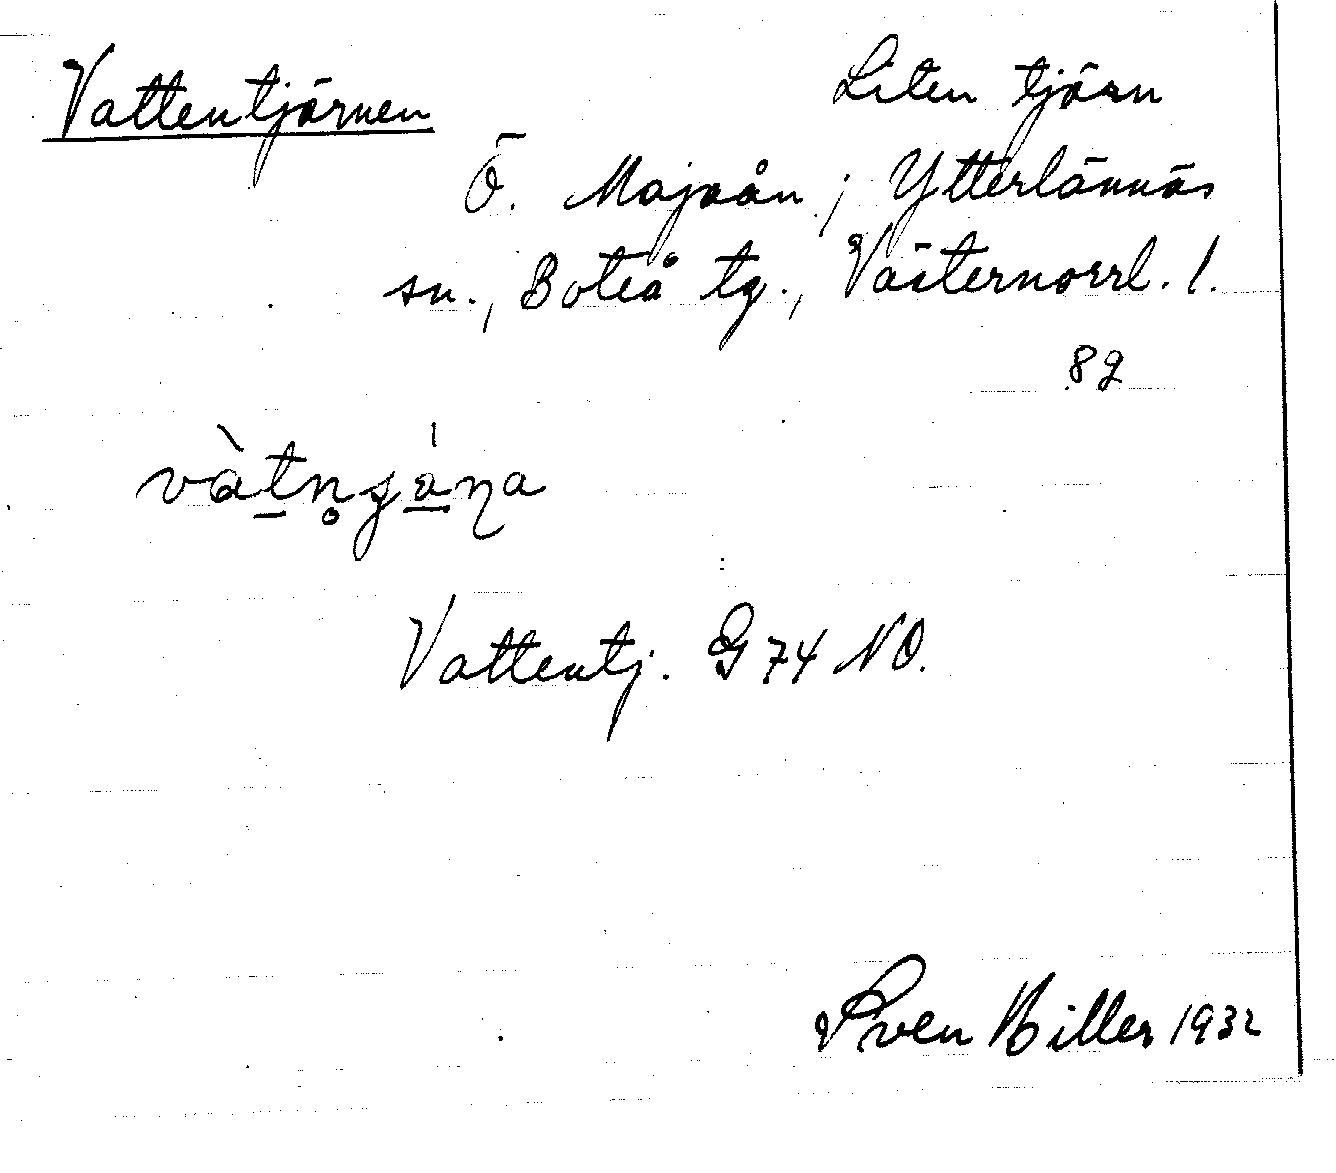 Vattentjärnen
Liten tjärn
Ö. Majaån, Ytterlännäs
sn., Boteå tg., Västernorrl. l.
82
Vattentj. G 74 NO.
Sven Hiller 1932